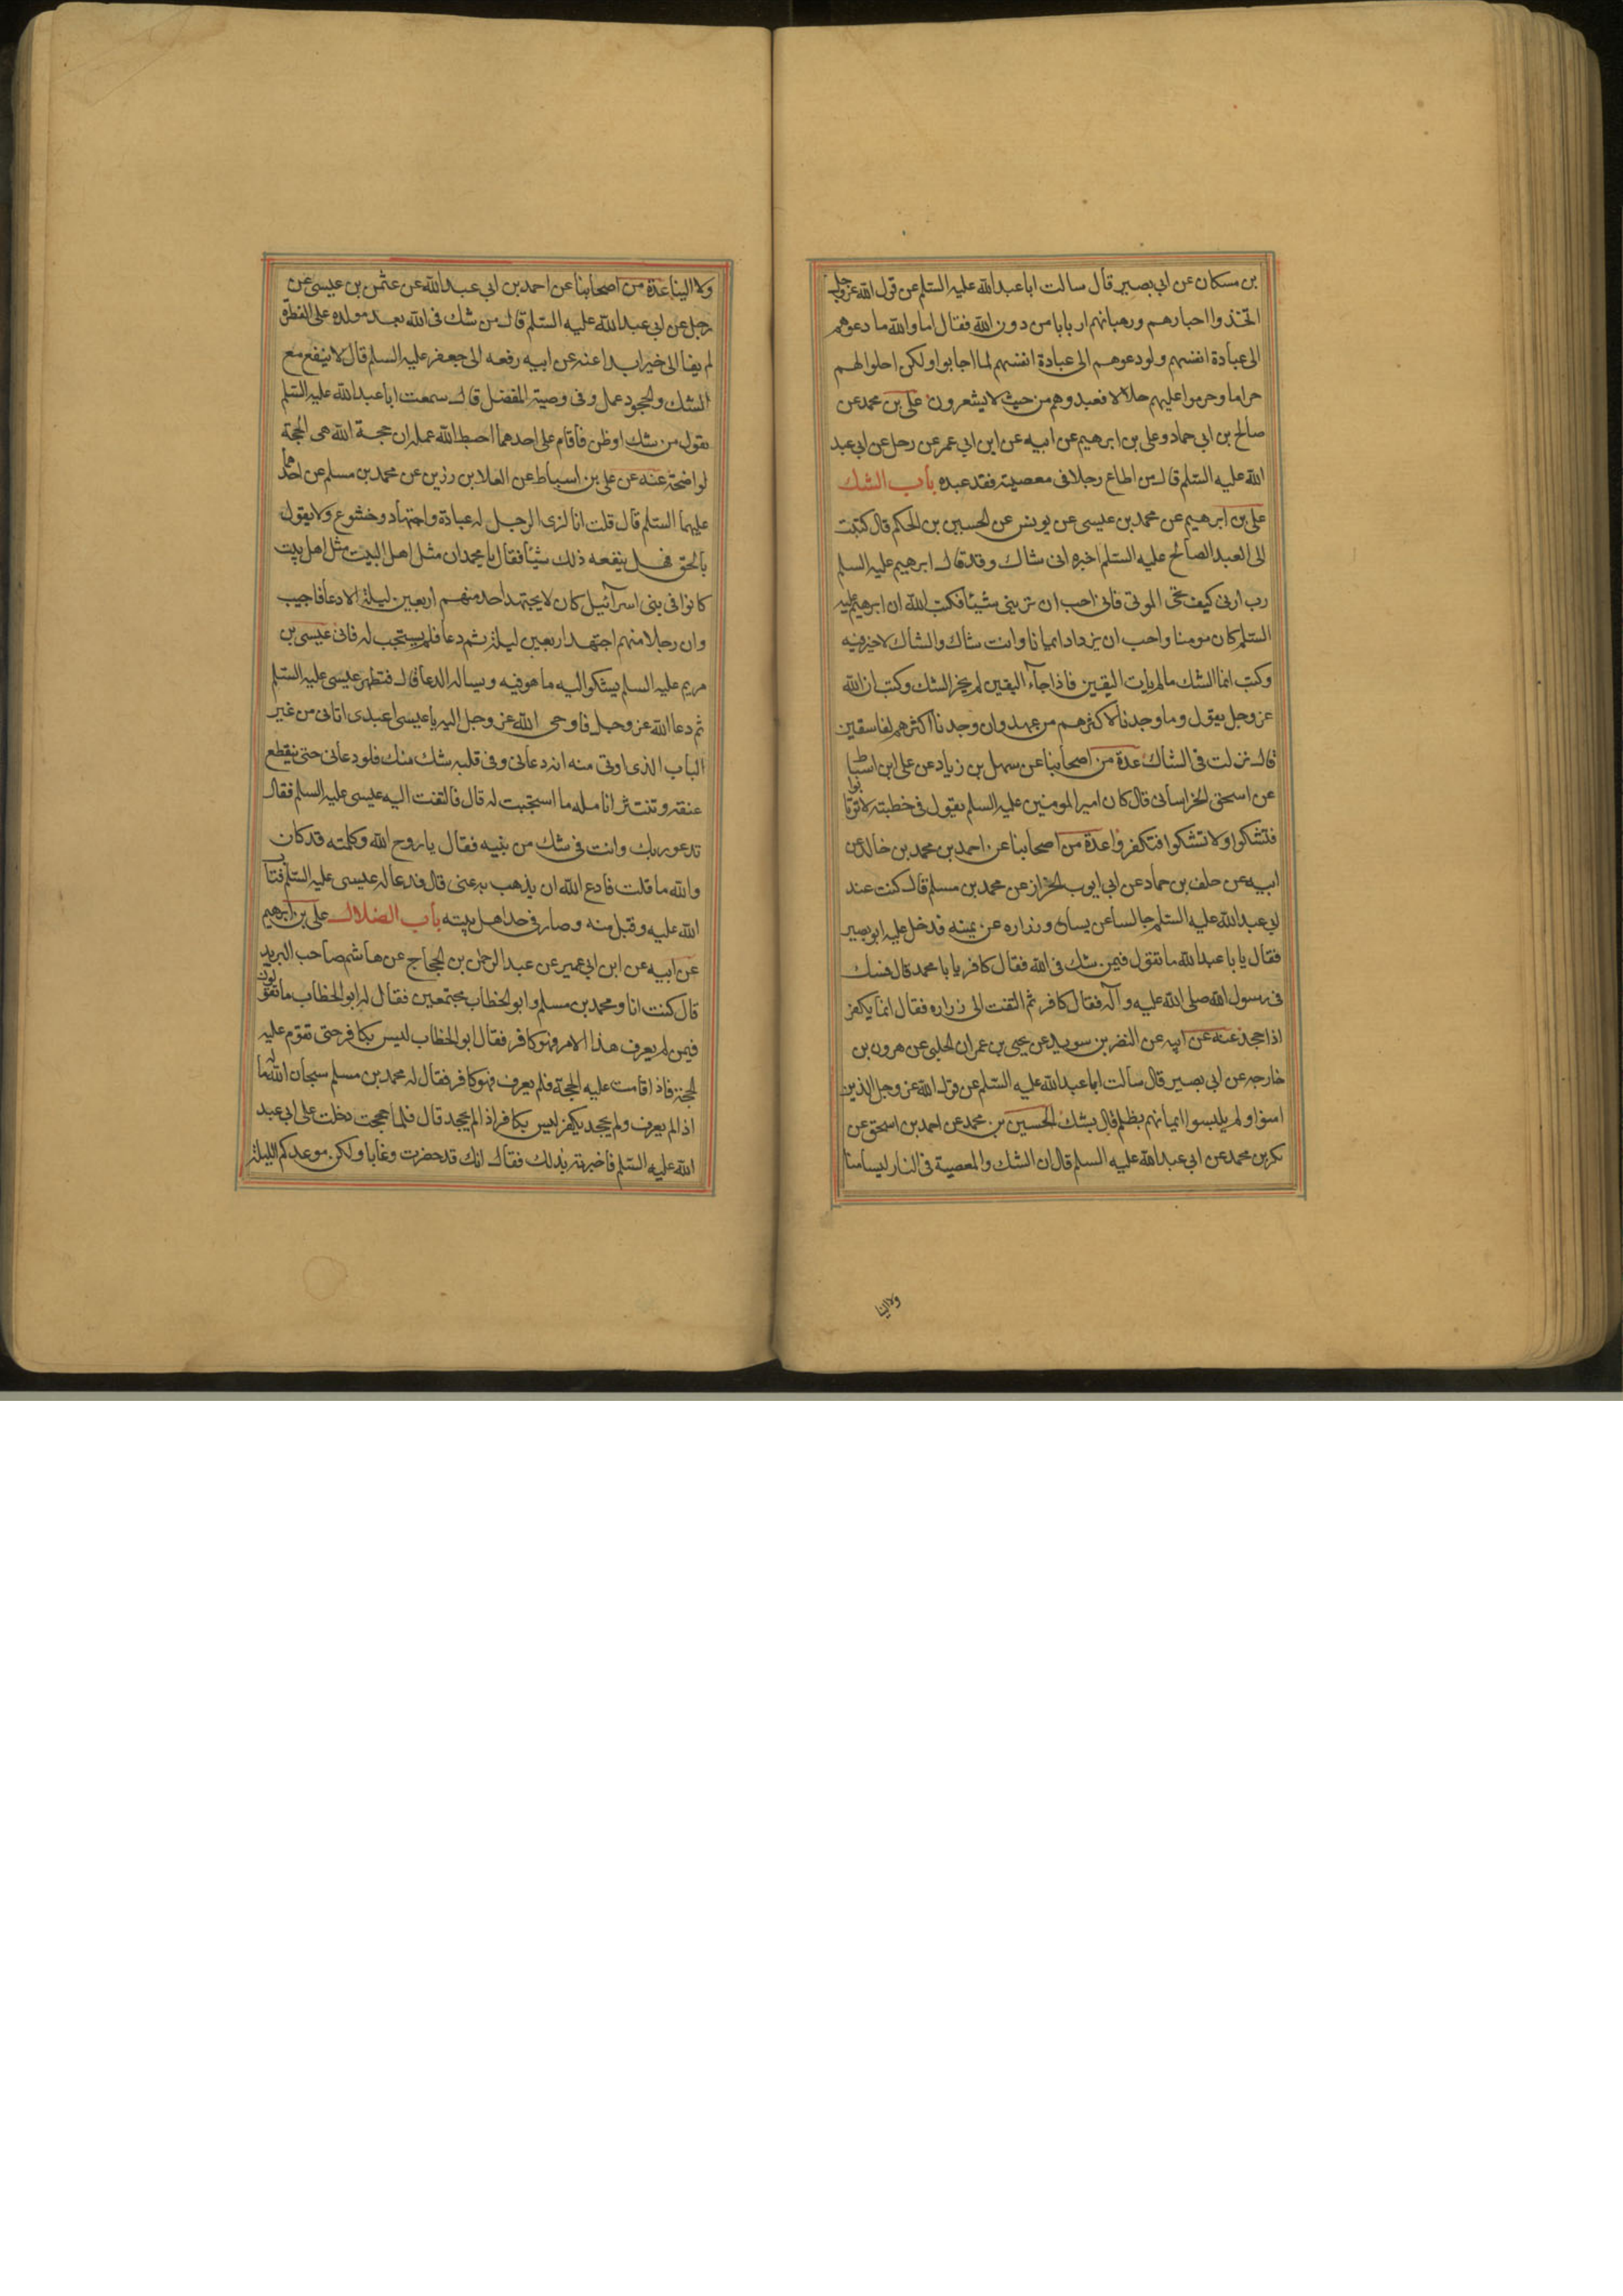 بن مسكان عن ابي بصير قال سالت ابا عبدالله عليه السلم عن قول الله عز وجل
اتخذوا احبارهم ورهبانهم اربابا من دون الله فقال اما والله ما دعوهم
الى عبادة انفسهم ولو دعوهم الى عبادة انفسهم لما اجابوا ولكن احلوا لهم
حراما وحرموا عليهم حلالا فعبدوهم من حيث لا يشعرون على بن محمد عن
صالح بن ابى حماد وعلى بن ابرهيم عن ابيه عن ابن ابي عمر عن رجل عن ابى عبد
الله عليه السلم قال من اطاع رجلا فى معصيته فقد عبده باب الشك
على بن ابرهيم عن محمد بن عيسى عن يونس عن الحسين بن الحكم قال كتبت
الى العبد الصالح عليه السلم اخبره انى شاك وقد قال ابرهيم عليه السلم
رب ارنى كيف تحى الموتى فانى احب ان ترينى شيئا فكتب الله ان ابرهيم عليه
السلم كان مومنا واحب ان يزداد ايمانا وانت شاك والشاك لا خير فيه
وكتب انما الشك ما لم يات اليقين فاذا جآء اليقين لم يجز الشك وكتب ان الله
عز وجل يقول وما وجدنا لاكثرهم من عهد وان وجدنا اكثرهم لفاسقين
قال نزلت فى الشاك عدة من اصحابنا عن سهل بن زياد عن على ابن اسباط
عن اسحق الخراسانى قال كان امير المومنين عليه السلم يقول فى خطبته لا ترتابوا
فتشكوا ولا تشكوا فتكفروا عدة من اصحابنا عن احمد بن محمد بن خالد عن
ابيه عن خلف بن حماد عن ابي ايوب الخزاز عن محمد بن مسلم قال كنت عند
ابي عبدالله عليه السلم جالسا عن يساره وزراره عن يمينه فدخل عليه ابو بصير
فقال يا با عبدالله ما تقول فيمن شك فى الله فقال كافر يا با محمد قال فشك
فى رسول الله صلى الله عليه وآله فقال كافر ثم التفت الى زراره فقال انما يكفر
اذا جحد عنه عن ابيه عن النضر بن سويد عن يحيى بن عمران الحلبى عن هرون بن
خارجه عن ابي بصير قال سألت ابا عبدالله عليه السلم عن قول الله عز وجل الذين
امنوا ولم يلبسوا ايمانهم بظلم قال بشك الحسين بن محمد عن احمد بن اسحق عن
بكر بن محمد عن ابي عبدالله عليه السلم قال ان الشك والمعصية فى النار ليسا منا
ولا الينا
ولا الينا عدة من اصحابنا عن احمد بن ابي عبدالله عن عثمن بن عيسى عن
رجل عن ابي عبدالله عليه السلم قال من شك فى الله بعد مولده على الفطرة
لم يفا الى خير ابدا عنه عن ابيه رفعه الى جعفر عليه السلم قال لا ينفع مع
الشك والجحود عمل وفى وصية المفضل قال سمعت ابا عبدالله عليه السلم
يقول من شك او ظن فاقام على احدهما احبط الله عمله ان حجة الله هى الحجة
الواضحة عنه عن على بن اسباط عن العلا بن رزين عن محمد بن مسلم عن احدهما
عليهما السلم قال قلت انا لنرى الرجل له عبادة واجتهاد وخشوع ولا يقول
بالحق فهل ينفعه ذلك شيئا فقال يا محمد ان مثل اهل البيت مثل اهل بيت
كانوا فى بنى اسرآئيل كان لا يجتهد احد منهم اربعين ليلة الا دعا فاجيب
وان رجلا منهم اجتهد اربعين ليلة ثم دعا فلم يستجب له فاتى عيسى بن
مريم عليه السلم يشكوا اليه ما هو فيه ويساله الدعا قال فتطهر عيسى عليه السلم
ثم دعا الله عز وجل فاوحى الله عز وجل اليه يا عيسى ا عبدى اتانى من غير
الباب الذى اوتى منه انه دعانى وفى قلبه شك منك فلو دعانى حتى ينقطع
عنقه وتنتثر انامله ما استجبت له قال فالتفت اليه عيسى عليه السلم فقال
تدعو ربك وانت فى شك من نبيه فقال يا روح الله وكلمته قد كان
والله ما قلت فادع الله ان يذهب به عنى قال فدعا له عيسى عليه السلم فتاب
الله عليه وقبل منه وصار فى حد اهل بيته باب الضلال على بن ابرهيم
عن ابيه عن ابن ابي عمير عن عبد الرحمن بن الحجاج عن هاشم صاحب البريد
قال كنت انا ومحمد بن مسلم وابو الخطاب مجتمعين فقال له ابو الخطاب ما تقولون
فيمن لم يعرف هذا الامر فهو كافر فقال ابو الخطاب ليس بكافر حتى تقوم عليه
الحجة فاذا قامت عليه الحجة فلم يعرف فهو كافر فقال له محمد بن مسلم سبحان الله ما له
اذا لم يعرف ولم يجحد يكفر ليس بكافر اذا لم يجحد قال فلما حججت دخلت على ابى عبد
الله عليه السلم فاخبرته بذلك فقال انك قد حضرت وغابا ولكن موعدكم الليلة